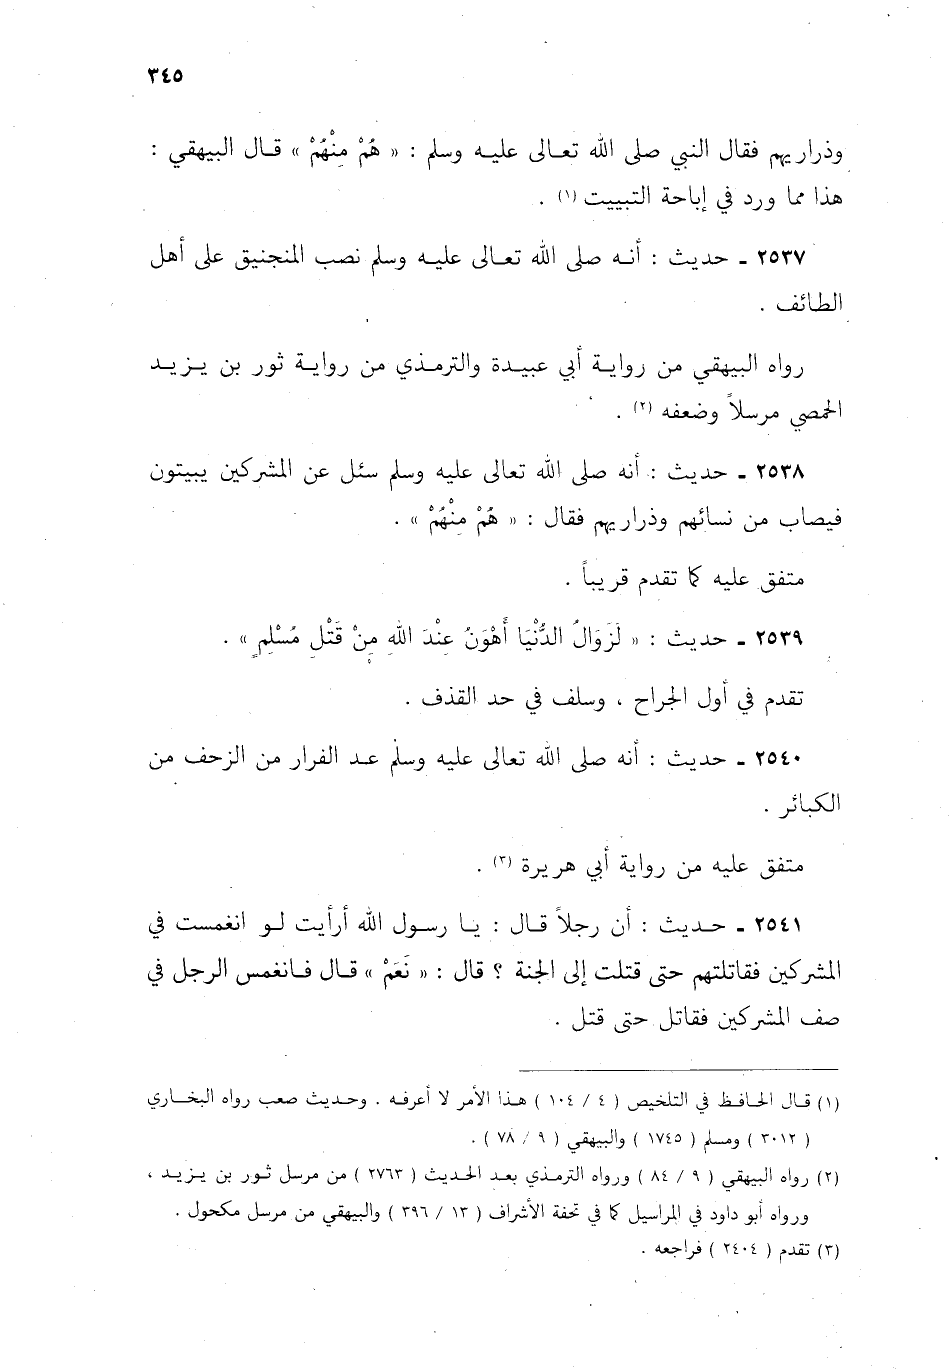 ٣٤٥
وذراريهم فقال النبي صلى الله تعالى عليه وسلم : « هُمْ مِنْهُمْ » قال البيهقي :
هذا مما ورد في إباحة التبييت (١) .
٢٥٣٧ - حديث : أنه صلى الله تعالى عليه وسلم نصب المنجنيق على أهل
الطائف .
رواه البيهقي من رواية أبي عبيدة والترمذي من رواية ثور بن يزيد
الحمصي مرسلاً وضعفه (٢) .
٢٥٣٨ - حديث : أنه صلى الله تعالى عليه وسلم سئل عن المشركين يبيتون
فيصاب من نسائهم وذراريهم فقال : « هُمْ مِنْهُمْ » .
متفق عليه كما تقدم قريباً .
٢٥٣٩ - حديث : « لَزَوَالُ الدُّنْيَا أَهْوَنُ عِنْدَ اللهِ مِنْ قَتْلِ مُسْلِمٍ » .
تقدم في أول الجراح ، وسلف في حد القذف .
٢٥٤٠ - حديث : أنه صلى الله تعالى عليه وسلم عد الفرار من الزحف من
الكبائر .
متفق عليه من رواية أبي هريرة (٣) .
٢٥٤١ - حديث : أن رجلاً قال : يا رسول الله أرأيت لو انغمست في
المشركين فقاتلتهم حتى قتلت إلى الجنة ؟ قال : « نَعَمْ » قال فانغمس الرجل في
صف المشركين فقاتل حتى قتل .
(١) قال الحافظ في التلخيص ( ٤ / ١٠٤ ) هذا الأمر لا أعرفه . وحديث صعب رواه البخاري
( ٣٠١٢ ) ومسلم ( ١٧٤٥ ) والبيهقي ( ٩ / ٧٨ ) .
(٢) رواه البيهقي ( ٩ / ٨٤ ) ورواه الترمذي بعد الحديث ( ٢٧٦٣ ) من مرسل ثور بن يزيد ،
ورواه أبو داود في المراسيل كما في تحفة الأشراف ( ١٣ / ٣٩٦ ) والبيهقي من مرسل مكحول .
(٣) تقدم ( ٢٤٠٤ ) فراجعه .